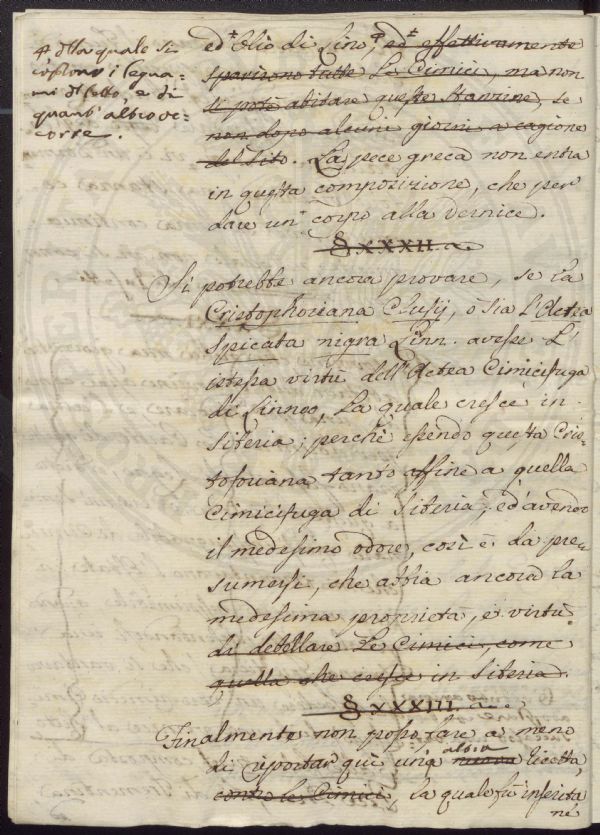 ed Olio di Lino, ed effettivamente
sparirono tutte Le Cimici, ma non
si potè abitare queste Stanzine, se
non dopo alcuni giorni a cagione
del sito. La pece greca non entra
in questa composizione, che per
dare un corpo alla vernice.
§ XXXII
Si potrebbe ancora provare, se la
Cristophoriana Clusij, o sia L'Actea
spicata nigra Linn. avesse L'
istessa virtù dell'Actea Cimicifuga
di Linneo, La quale cresce in
Siberia; perchè essendo questa Cris-
toforiana tanto affine a quella
Cimicifuga di Siberia, ed avendo
il medesimo odore, così è da pre-
sumersi, che abbia ancora la
medesima proprieta, e virtù
di debellare Le Cimici, come
quella che cresce in Siberia.
§ XXXIII
Finalmente non posso fare a meno
di riportar quì una nuova altra ricetta,
contro le Cimici, la quale fù inserita
né
della quale si
i legna-
mi di Letto, e di
quant'altro oc-
corre.